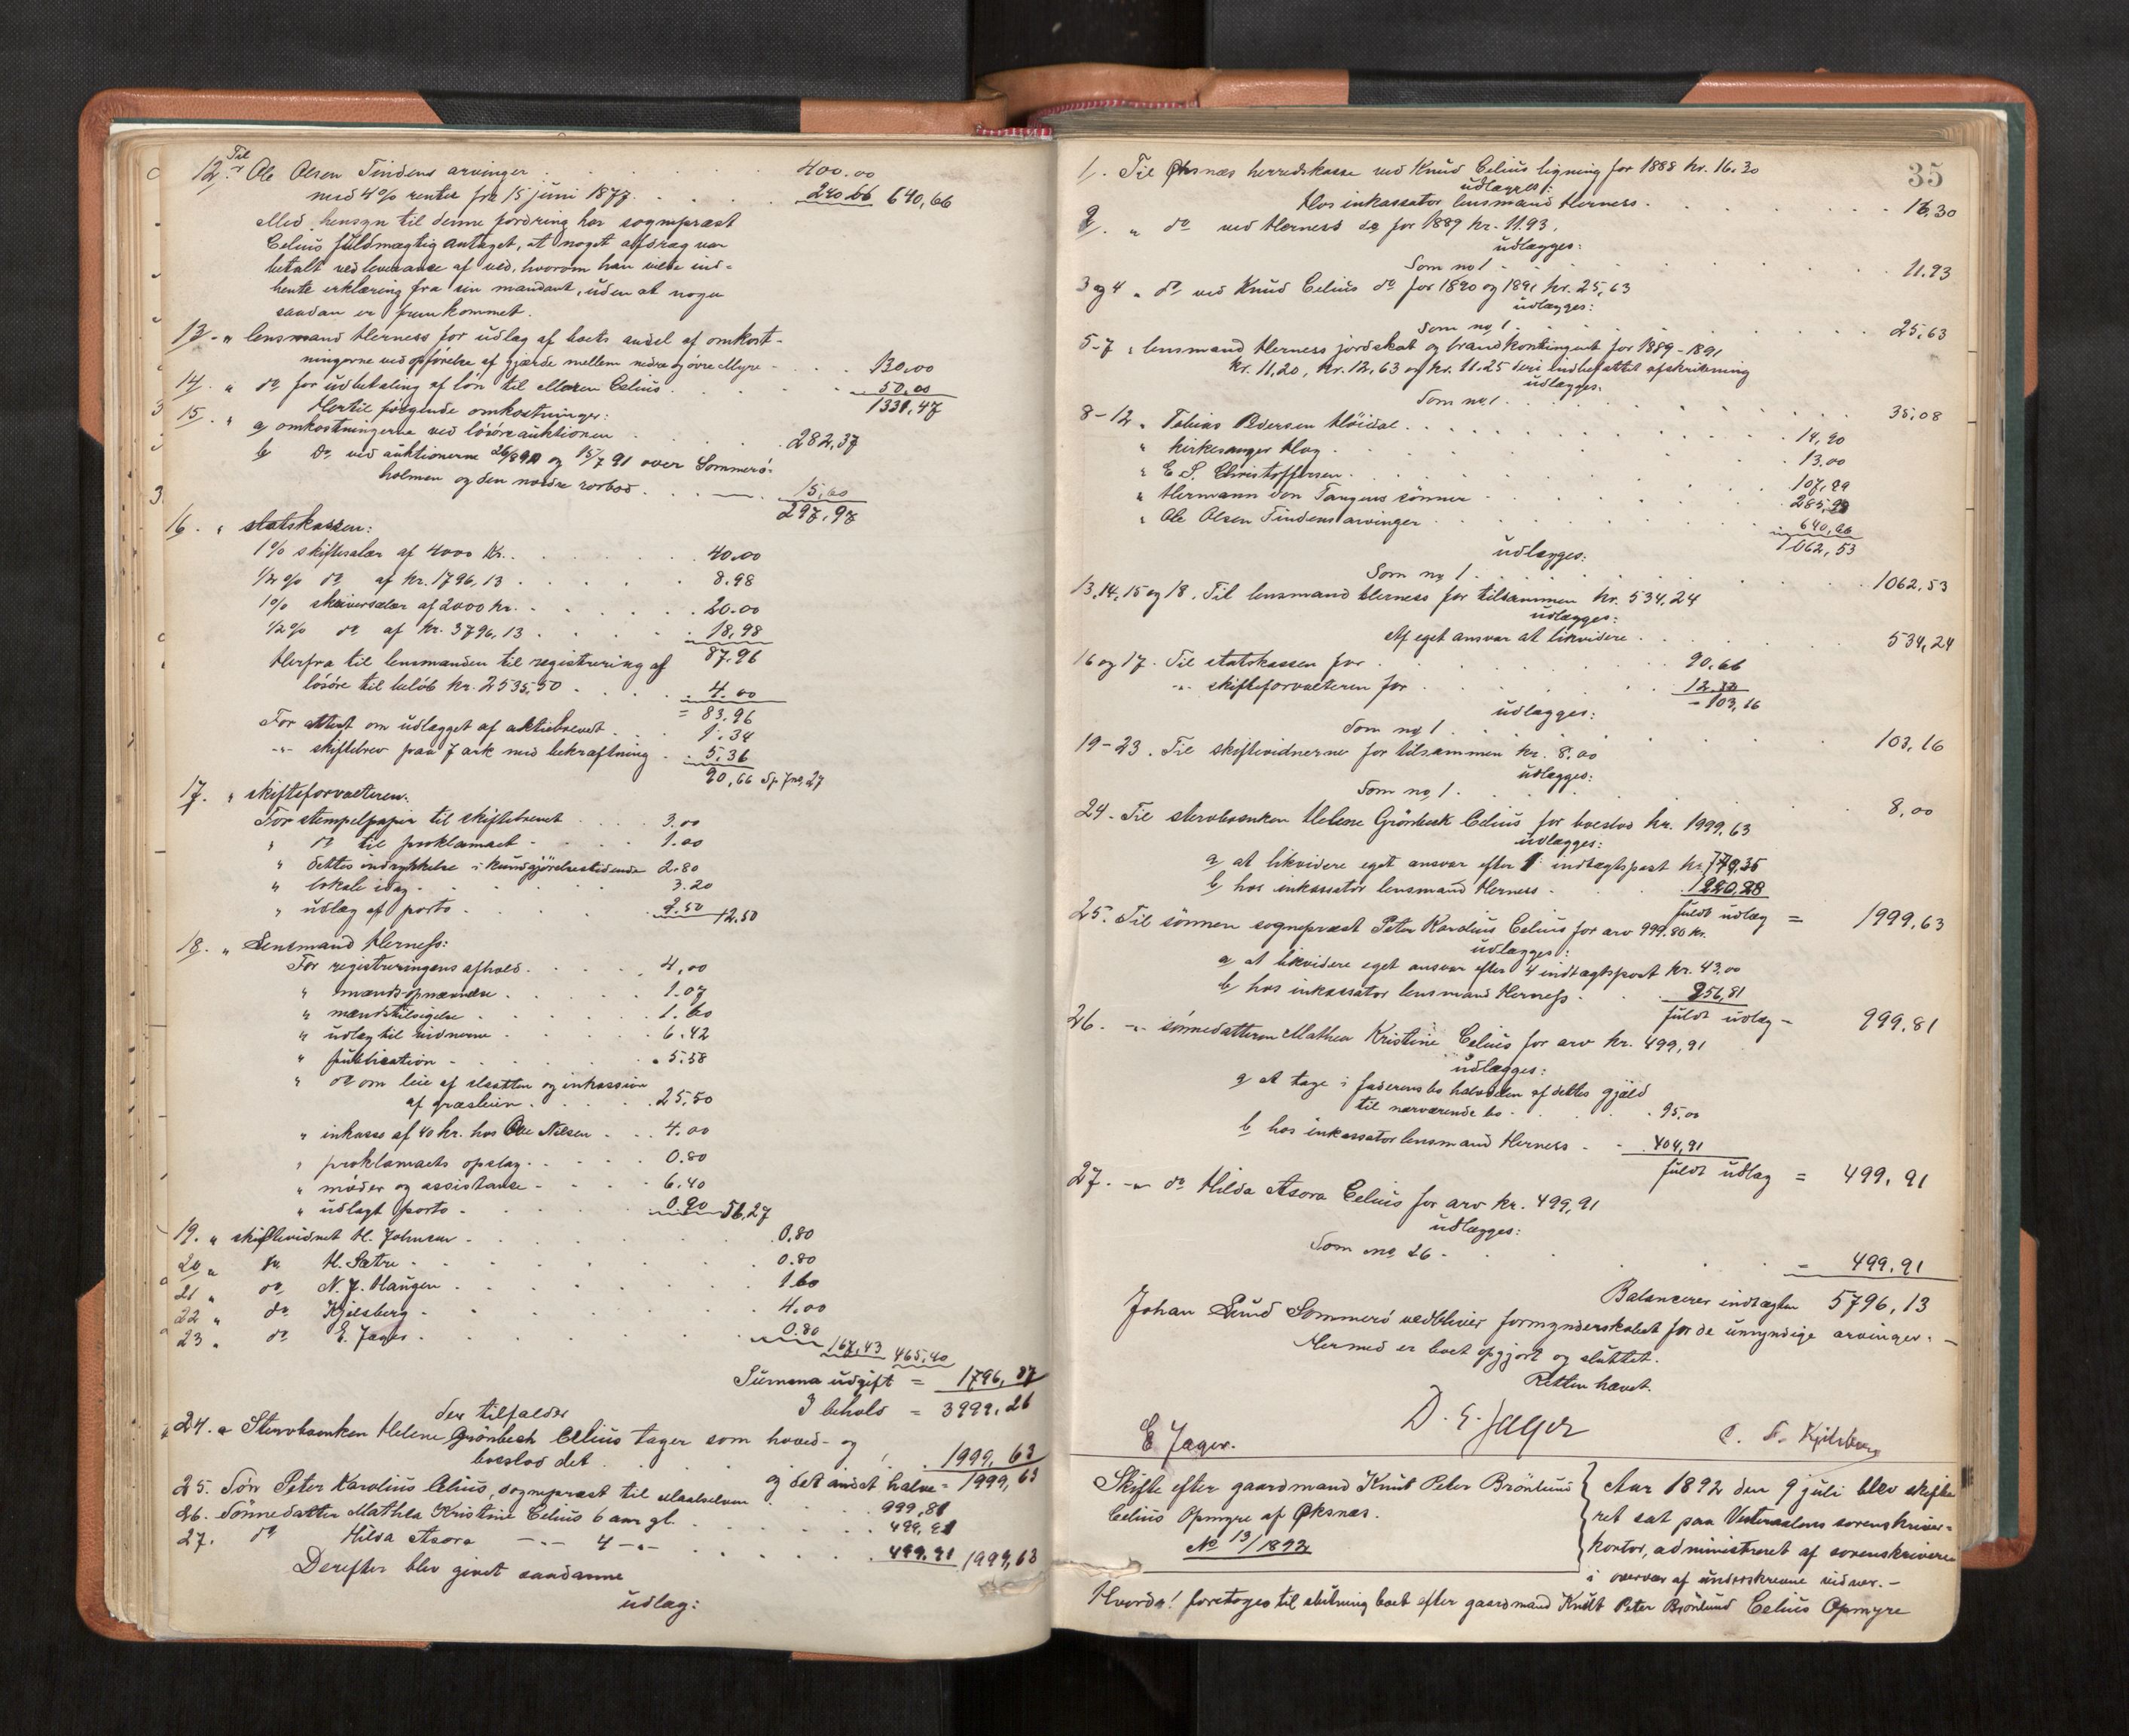 Til
12. " Ole Olsen Tindens arvinger . . . 400.00
med 4% renter fra 15 juni 1877. . . . 240.66 640,66
Med hensyn til denne fordring har sogneprest
Celius fuldmægtig antaget, at noget afdrag var
betalt ved leverance af ved, hvorom han vilde ind-
hente erklæring fra sin mandant, uden at nogen
saadan er fremkommet.
13 - " lensmand Herness for udlæg af boets andel af omkost-
ningerne ved opførelse af gjærde mellem nedre og øvre Myre - . . 130.00
14. " do for udbetaling af løn til Maren Celius . . . 50.00
1331,47
15. " Hertil følgende omkostninger:
a omkostningerne ved løsøreauktionen . . . 282,37
b do ved auktionerne 26/8 90 og 15/7 91 over Sommerö-
holmen og den nordre rorbod . . . 15,60
297,97
16. " statskassen:
1% skiftesalær af 4000 Kr. . . . 40.00
1/2 % do af kr. 1796,13 . . . 8.98
1% skriversalær af 2000 kr. . . . 20.00
1/2 % do af kr. 3796,13 . . . 18,98
87.96
Herfra til lensmanden til registrering af
løsøre til beløb kr. 2535,50 . . . 4.00
= 83.96
For attest om udlægget af aktiebrevet . . 1.34
-"- skiftebrev paa 7 ark med bekræftning . 5.36
90,66 Sp. 7 no. 27
17. " skifteforvalteren:
For stempelpapir til skiftebrevet . . . 3.00
" do til proklamaet - . . . 1.00
" dettes indrykkelse i kundgjørelsestidende 2.80
" lokale idag - . . . 3.20
" udlæg af porto - . . . 2.50 12.50
18. " Lensmand Herness:
For registreringens afhold . . . 4,00
" mænds-opnævnelse . . . 1.07
" mændstilsigelse . . . 1.60
" udlæg til vidnerne . . . 6.42
" publication - . . . 5.58
" do om leie af slaatten og inkassation
af græsleien . . . 25.50
" inkasso af 40 kr. hos Ole Nilsen . . 4.00
" proklamaets opslag . . . 0.80
" møder og assistanse - . . . 6.40
" udlagt porto - . . . 0.90 56,27
19. " skiftevidnet H. Johnsen - . . . 0.80
20 " do H. Sætre - . . . 0.80
21 " do N. J. Haugen - . . . 1.60
22 " do Kjelsberg - . . . 4.00
23 " do E. Jager . . . 0.80
167,43 465,40
Summa udgift = 1796,87
I behold = 3999,26
der tilfalder
24. a Stervboenken Helene Grönbech Celius tager som hoved- og
boeslod det . . . 1999,63
og det andet halve = 1999,63
25. Søn Peter Karolius Celius, sogneprest til Maalselven . . 999,81
26. Sønnedatter Mathea Kristine Celius 6 aar gl. . . . 499,91
27. do Hilda Asora -"- 4 -"- . . . 499.91 1999,63
Derefter blev givet saadanne
udlæg:
35
1. Til Øksnæs herredskasse ved Knud Celius ligning for 1888 kr. 16.30
udlægges:
Hos inkassator lensmand Herness . . . 16.30
2. " do ved Herness do for 1889 kr. 11.93.
udlægges:
Som no 1 . . . 11.93
3 og 4 " do ved Knud Celius do for 1890 og 1891 kr. 25,63
udlægges:
Som no 1 . . . 25,63
5-7 " lensmand Herness jordskat og brandkontingent for 1889-1891
kr. 11.20, kr. 12,63 og kr. 11.25 deri indbefattet afskrivning
udlægges.
Som no 1 . . . 35,08
8-12 " Tobias Pedersen Höidal . . . 14,90
" kirkesanger Hog . . . 13.00
" E. S. Christoffersen . . . 107,99
" Hermann von Tangens sønner . . . 285,98
" Ole Olsen Tindens arvinger . . . 640,66
1062,53
udlægges:
Som no 1 . . . 1062,53
13, 14, 15 og 18. Til lensmand Herness for tilsammen kr. 534,24
udlægges:
Af eget ansvar at likvidere . . . 534,24
16 og 17. Til statskassen for . . . 90.66
-"- skifteforvalteren for . . . 12.50
- 103,16
udlægges:
Som no 1 . . . 103,16
19-23. Til skiftevidnerne for tilsammen kr. 8,00
udlægges:
Som no 1 . . . 8,00
24 - Til stervboenken Helene Grönbeck Celius for boeslod kr. 1999,63
udlægges:
a at likvidere eget ansvar efter 1 indtægtspost kr. 779,35
b hos inkassator lensmand Herness - . . 1220,28
fuldt udlæg = 1999,63
25. Til sønnen sogneprest Peter Karolius Celius for arv 999.80 kr.
udlægges:
a at likvidere eget ansvar efter 4 indtægtspost kr. 43.00
b hos inkassator lensmand Herness - . . 956,81
fuldt udlæg - 999,81
26. -"- sønnedatteren Mathea Kristine Celius for arv kr. 499,91
udlægges:
a at tage i faderens bo halvdelen af dettes gjæld
til nærværende bo - . . . 95.00
b hos inkassator lensmand Herness - - 404,91
fuldt udlæg = 499,91
27. -"- do Hilda Asora Celius for arv kr. 499,91
udlægges:
Som no 26 - . . . = 499.91
Balancerer indtægten 5796,13
Johan Lund Sommerö vedbliver formynderskabet for de umyndige arvinger. -
Hermed er boet opgjort og sluttet.
Retten hævet.
D. E. Jager
E Jager. C. F. Kjelsberg
Skifte efter gaardmand Knut Peter Brönlund
Celius Opmyre af Øksnæs.
No 13/1892
Aar 1892 den 9 juli blev skifte
ret sat paa Vesteraalens sorenskriver-
kontor, administreret af sorenskriveren
i overvær af underskrevne vidner. -
Hvorda! foretoges til slutning boet efter gaardmand Knudt Peter Brönlund Celius Opmyre